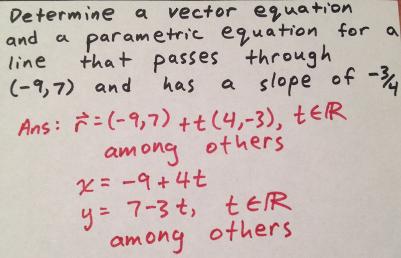 Determine a vector equation
and a parametric equation for a
line that passes through
(-9,7) and has a slope of -3/4
Ans: r⃗ = (-9,7) + t(4,-3), t∈ℝ
among others
x = -9+4t
y = 7-3t, t∈ℝ
among others